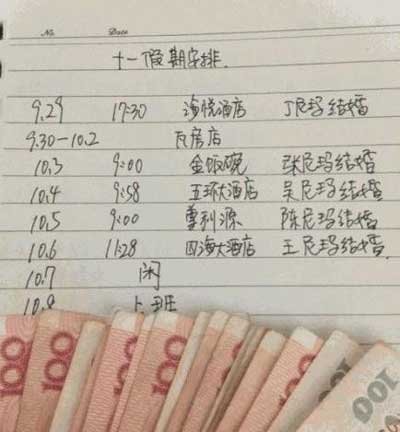 No. Date
十一假期安排.
9.29 17:30 海悦酒店 丁尼玛结婚
9.30-10.2 瓦房店
10.3 9:00 金饭碗 张尼玛结婚
10.4 9:58 五环大酒店 吴尼玛结婚
10.5 9:00 曹利源 陈尼玛结婚
10.6 11:28 四海大酒店 王尼玛结婚.
10.7 闲
10.8 上班
100 100 100 100
100